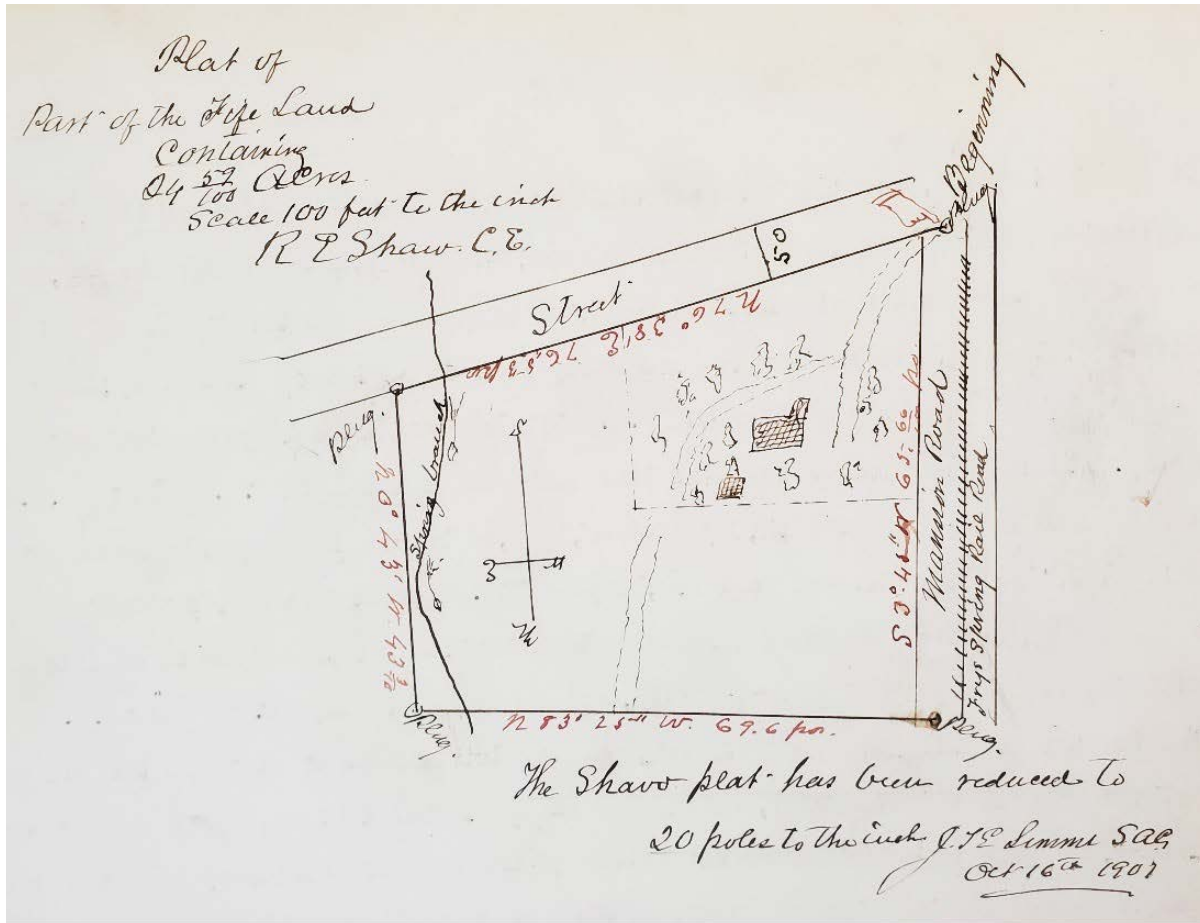 Plat of
Part of the Fife Land
Containing
24 59/100 Acres
Scale 100 feet to the inch
R E Shaw. C.E.
Beginning
Plug
50
Street
N 76° 38' E 76.53 po
Plug.
Spring branch
N 0° 43' W. 43
S 3° 45" W 65.
Mannion Road
Frys Spring Rail Road
Plug.
N 83° 25" W. 69.6 po.
Plug.
The Shaw plat has been reduced to
20 poles to the inch J.T.E Simms SAC
Oct 16th 1907